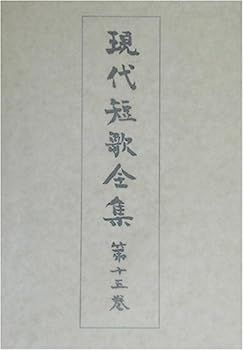 現代短歌全集
第十五巻